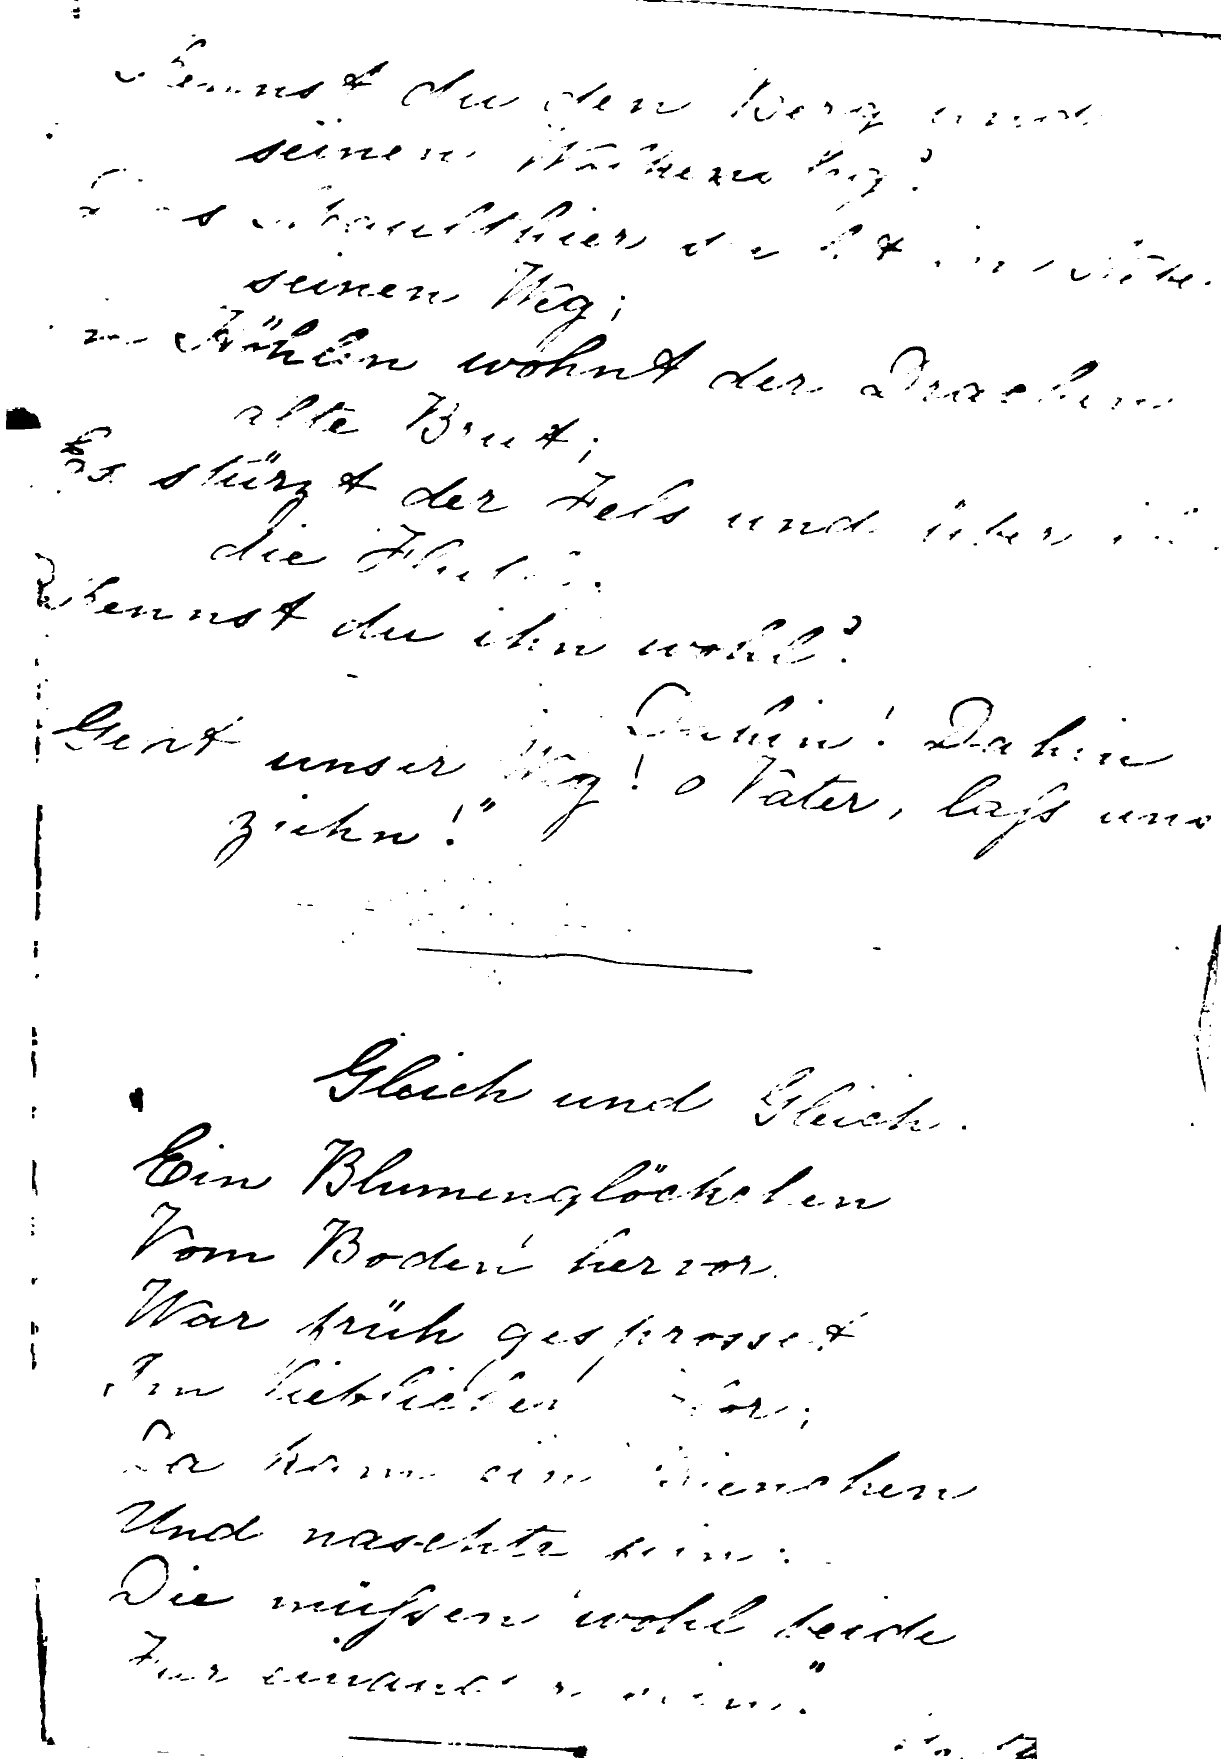 Kennst du den Berg und
seinen Wolkensteg?
Das Maulthier sucht im Nebel
seinen Weg;
in Höhlen wohnt der Drachen
alte Brut;
Es stürzt der Fels und über ihn
die Fluth.
Kennst du ihn wohl?
Dahin! Dahin
Geht unser Weg! o Vater, laß uns
ziehn!"
Gleich und Gleich.
Ein Blumenglöckchen
Vom Boden hervor
War früh gesprosset
Im lieblichen Flor;
Da kam ein Bienchen
Und naschte fein:
Die müßen wohl beide
Für einander sein."